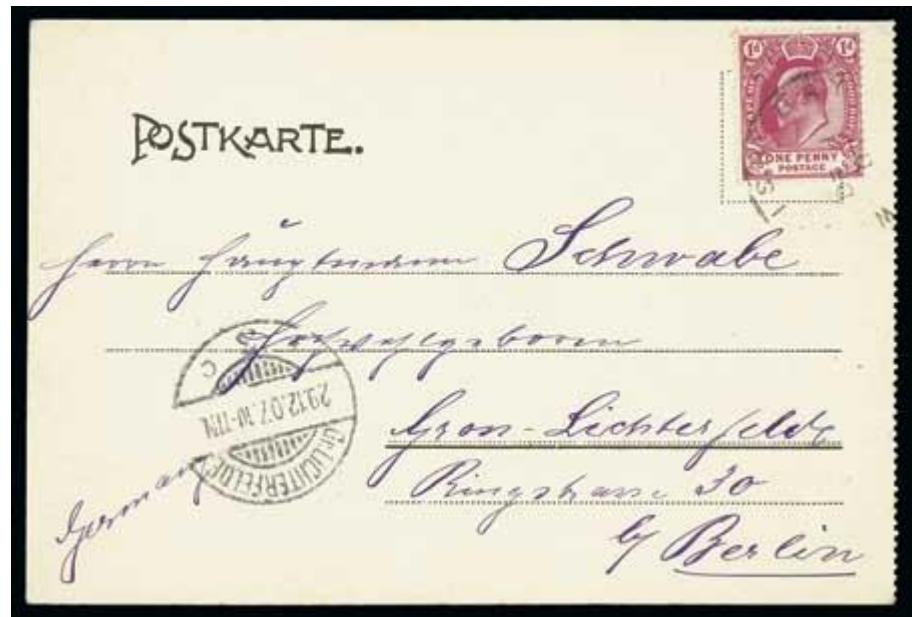 POSTKARTE.
1d 1d
ONE PENNY
POSTAGE
Herrn Hauptmann Schwabe
Hochwohlgeboren
Gross-Lichterfelde
Ringstrasse 30
b/ Berlin
Germany
29.12.07. 10-11N.
Gr. LICHTERFELDE
C